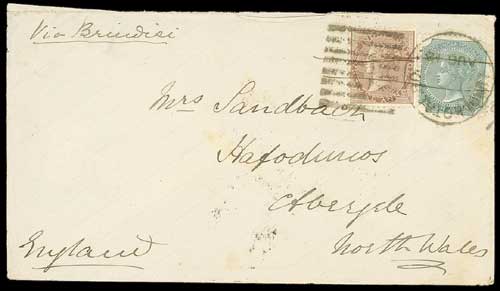 Via Brindisi
Mrs Sandbach
Hafodunos
Abergele
North Wales
England